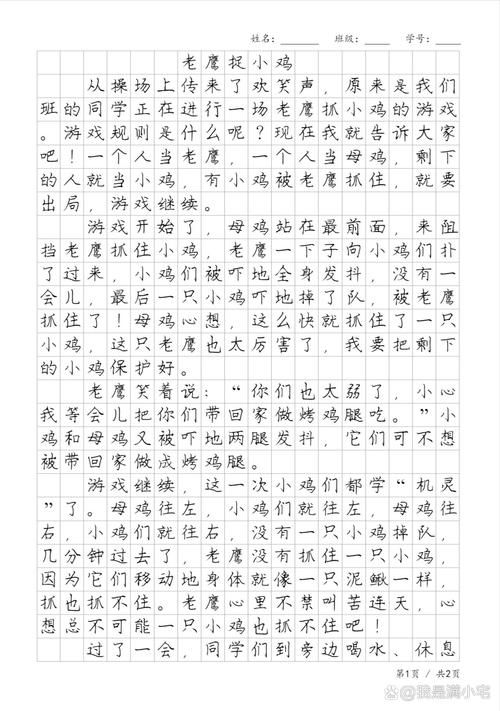 姓名： 班级： 学号：
老鹰捉小鸡
从操场上传来了欢笑声，原来是我们
班的同学正在进行一场老鹰抓小鸡的游戏
。游戏规则是什么呢？现在我就告诉大家
吧！一个人当老鹰，一个人当母鸡，剩下
的人就当小鸡，有小鸡被老鹰抓住，就要
出局，游戏继续。
游戏开始了，母鸡站在最前面，来阻
挡老鹰抓住小鸡，老鹰一下子向小鸡们扑
了过来，小鸡们被吓地全身发抖，没有一
会儿，最后一只小鸡吓地掉了队，被老鹰
抓住了！母鸡心想，这么快就抓住了一只
小鸡，这只老鹰也太厉害了，我要把剩下
的小鸡保护好。
老鹰笑着说：“你们也太弱了，小心
我等会儿把你们带回家做烤鸡腿吃。”小
鸡和母鸡又被吓地两腿发抖，它们可不想
被带回家做成烤鸡腿。
游戏继续，这一次小鸡们都学“机灵
”了。母鸡往左，小鸡们就往左，母鸡往
右，小鸡们就往右，没有一只小鸡掉队，
几分钟过去了，老鹰没有抓住一只小鸡，
因为它们移动地身体就像一只泥鳅一样，
抓也抓不住。老鹰心里不禁叫苦连天，心
想总不可能一只小鸡也抓不住吧！
过了一会，同学们到旁边喝水、休息
第1页 / 共2页
@我是满小宅